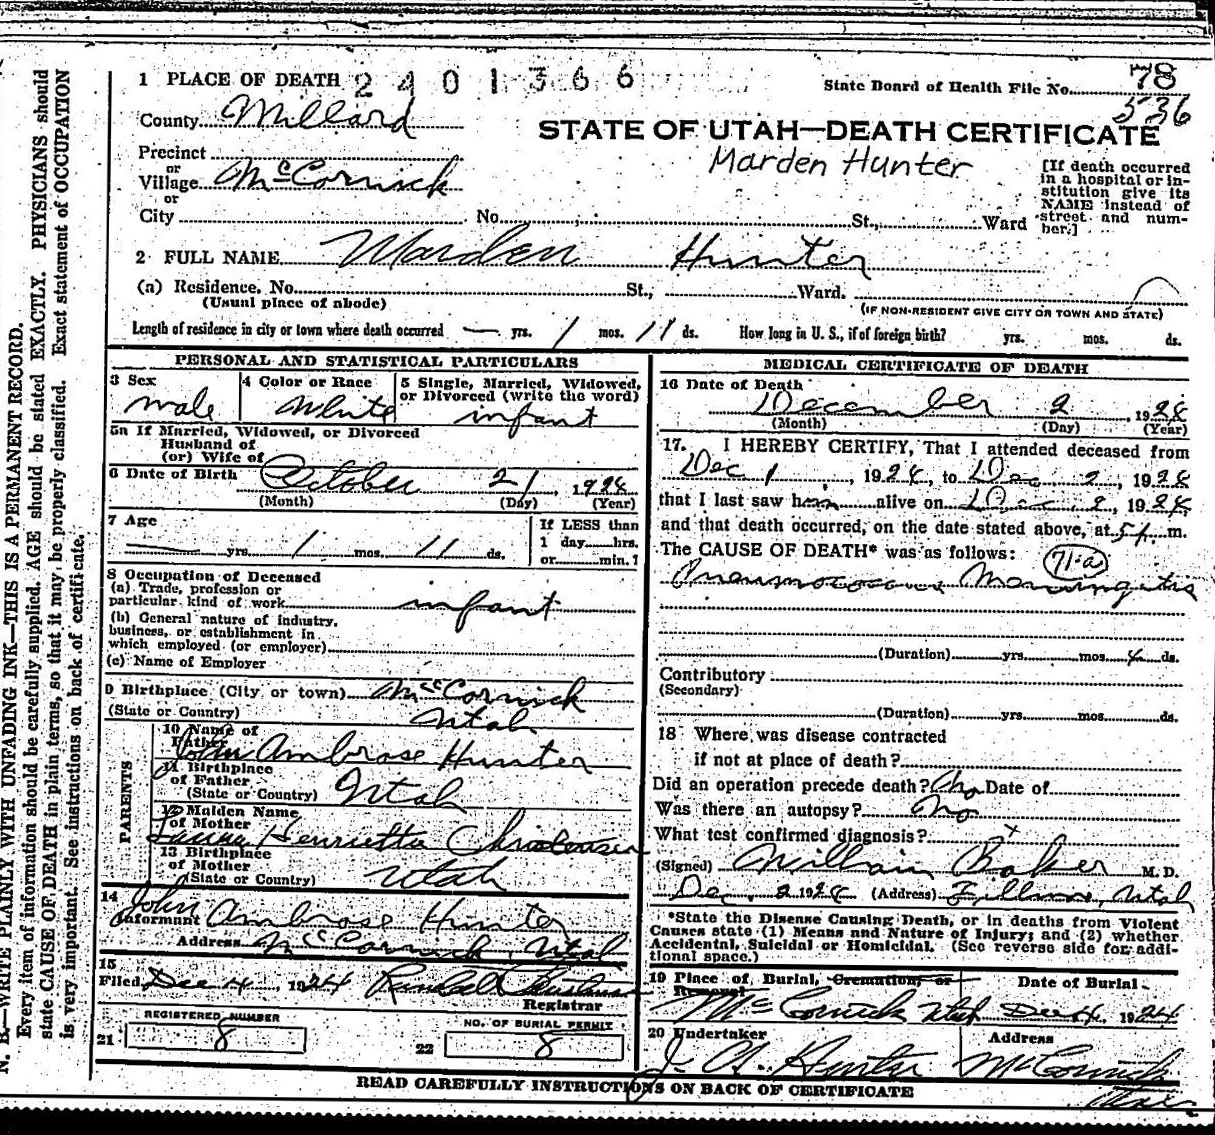 1 PLACE OF DEATH 2401366
State Board of Health File No. 78
536
County Millard
STATE OF UTAH—DEATH CERTIFICATE
Precinct
or
Village McCornick
Marden Hunter
[If death occurred in a hospital or institution give its NAME instead of street and number.]
or
City No. St., Ward
2 FULL NAME Marden Hunter
(a) Residence. No. St., Ward.
(Usual place of abode) (IF NON-RESIDENT GIVE CITY OR TOWN AND STATE)
Length of residence in city or town where death occurred — yrs. 1 mos. 11 ds. How long in U. S., if of foreign birth? yrs. mos. ds.
PERSONAL AND STATISTICAL PARTICULARS
3 Sex 4 Color or Race 5 Single, Married, Widowed, or Divorced (write the word)
male White infant
5a If Married, Widowed, or Divorced
Husband of
(or) Wife of
6 Date of Birth October 21, 1924
(Month) (Day) (Year)
7 Age If LESS than
1 day hrs.
— yrs. 1 mos. 11 ds. or min.?
8 Occupation of Deceased
(a) Trade, profession or
particular kind of work infant
(b) General nature of industry,
business, or establishment in
which employed (or employer)
(c) Name of Employer
9 Birthplace (City or town) McCornick
(State or Country) Utah
PARENTS
10 Name of
Father John Ambrose Hunter
11 Birthplace
of Father
(State or Country) Utah
12 Maiden Name
of Mother
Henrietta Christensen
13 Birthplace
of Mother
(State or Country) Utah
14
Informant John Ambrose Hunter
Address McCornick, Utah
15
Filed Dec 4 1924
Registrar
21 REGISTERED NUMBER 8
22 NO. OF BURIAL PERMIT 8
MEDICAL CERTIFICATE OF DEATH
16 Date of Death
December 2, 1924
(Month) (Day) (Year)
17. I HEREBY CERTIFY, That I attended deceased from
Dec 1, 1924, to Dec 2, 1924
that I last saw him alive on Dec 2, 1924
and that death occurred, on the date stated above, at m.
The CAUSE OF DEATH* was as follows: 71-a
Pneumococcus Meningitis
(Duration) yrs. mos. 4 ds.
Contributory
(Secondary)
(Duration) yrs. mos. ds.
18 Where was disease contracted
if not at place of death?
Did an operation precede death? No Date of
Was there an autopsy? No
What test confirmed diagnosis? x
(Signed) William Baker M. D.
Dec. 2 1924 (Address) Fillmore, Utah
*State the Disease Causing Death, or in deaths from Violent
Causes state (1) Means and Nature of Injury; and (2) whether
Accidental, Suicidal or Homicidal. (See reverse side for additional space.)
19 Place of Burial, Cremation, or Removal Date of Burial
McCornick Utah Dec 4, 1924
20 Undertaker Address
J. A. Hunter McCornick
Utah
READ CAREFULLY INSTRUCTIONS ON BACK OF CERTIFICATE
N. B.—WRITE PLAINLY WITH UNFADING INK—THIS IS A PERMANENT RECORD.
Every item of information should be carefully supplied. AGE should be stated EXACTLY. PHYSICIANS should
state CAUSE OF DEATH in plain terms, so that it may be properly classified. Exact statement of OCCUPATION
is very important. See instructions on back of certificate.